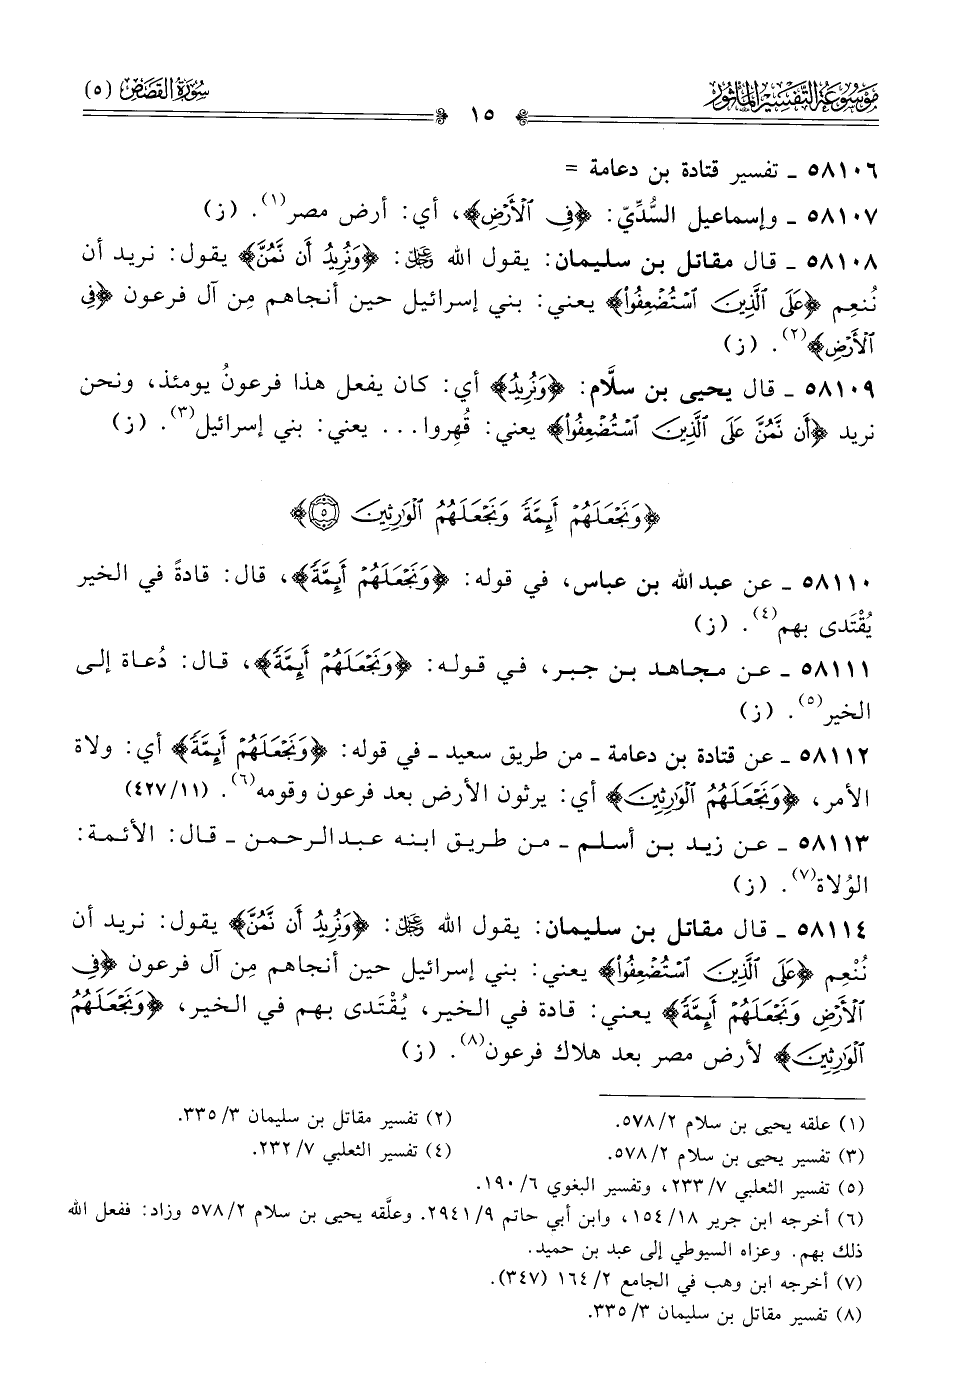 موسوعة التفسير المأثور
سورة القصص (٥)
١٥
٥٨١٠٦ ـ تفسير قتادة بن دعامة =
٥٨١٠٧ ـ وإسماعيل السُّدِّيّ: ﴿فِى ٱلْأَرْضِ﴾، أي: أرض مصر(١). (ز)
٥٨١٠٨ ـ قال مقاتل بن سليمان: يقول الله ﷿: ﴿وَنُرِيدُ أَن نَّمُنَّ﴾ يقول: نريد أن
نُنعِم ﴿عَلَى ٱلَّذِينَ ٱسْتُضْعِفُوا۟﴾ يعني: بني إسرائيل حين أنجاهم مِن آل فرعون ﴿فِى
ٱلْأَرْضِ﴾(٢). (ز)
٥٨١٠٩ ـ قال يحيى بن سلَّام: ﴿وَنُرِيدُ﴾ أي: كان يفعل هذا فرعونُ يومئذ، ونحن
نريد ﴿أَن نَّمُنَّ عَلَى ٱلَّذِينَ ٱسْتُضْعِفُوا۟﴾ يعني: قُهِروا... يعني: بني إسرائيل(٣). (ز)
﴿وَنَجْعَلَهُمْ أَئِمَّةً وَنَجْعَلَهُمُ ٱلْوَٰرِثِينَ ٥﴾
٥٨١١٠ ـ عن عبد الله بن عباس، في قوله: ﴿وَنَجْعَلَهُمْ أَئِمَّةً﴾، قال: قادةً في الخير
يُقْتَدى بهم(٤). (ز)
٥٨١١١ ـ عن مجاهد بن جبر، في قوله: ﴿وَنَجْعَلَهُمْ أَئِمَّةً﴾، قال: دُعاة إلى
الخير(٥). (ز)
٥٨١١٢ ـ عن قتادة بن دعامة ـ من طريق سعيد ـ في قوله: ﴿وَنَجْعَلَهُمْ أَئِمَّةً﴾ أي: ولاة
الأمر، ﴿وَنَجْعَلَهُمُ ٱلْوَٰرِثِينَ﴾ أي: يرثون الأرض بعد فرعون وقومه(٦). (١١/ ٤٢٧)
٥٨١١٣ ـ عن زيد بن أسلم ـ من طريق ابنه عبد الرحمن ـ قال: الأئمة:
الوُلاة(٧). (ز)
٥٨١١٤ ـ قال مقاتل بن سليمان: يقول الله ﷿: ﴿وَنُرِيدُ أَن نَّمُنَّ﴾ يقول: نريد أن
نُنْعِم ﴿عَلَى ٱلَّذِينَ ٱسْتُضْعِفُوا۟﴾ يعني: بني إسرائيل حين أنجاهم مِن آل فرعون ﴿فِى
ٱلْأَرْضِ وَنَجْعَلَهُمْ أَئِمَّةً﴾ يعني: قادة في الخير، يُقْتَدى بهم في الخير، ﴿وَنَجْعَلَهُمُ
ٱلْوَٰرِثِينَ﴾ لأرض مصر بعد هلاك فرعون(٨). (ز)
(١) علقه يحيى بن سلام ٢/ ٥٧٨.
(٢) تفسير مقاتل بن سليمان ٣/ ٣٣٥.
(٣) تفسير يحيى بن سلام ٢/ ٥٧٨.
(٤) تفسير الثعلبي ٧/ ٢٣٢.
(٥) تفسير الثعلبي ٧/ ٢٣٣، وتفسير البغوي ٦/ ١٩٠.
(٦) أخرجه ابن جرير ١٨/ ١٥٤، وابن أبي حاتم ٩/ ٢٩٤١. وعلَّقه يحيى بن سلام ٢/ ٥٧٨ وزاد: ففعل الله
ذلك بهم. وعزاه السيوطي إلى عبد بن حميد.
(٧) أخرجه ابن وهب في الجامع ٢/ ١٦٤ (٣٤٧).
(٨) تفسير مقاتل بن سليمان ٣/ ٣٣٥.